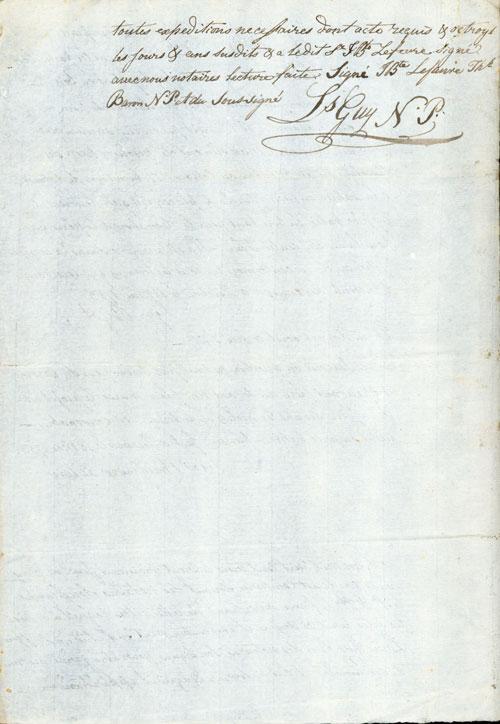 toutes expeditions necessaires dont acte requis & octroyé
les jours & ans susdits & a ledit Sr. J. Bte Lefevre signé
avec nous notaires lecture faite. Signé JBte Lefevre Ths
Baron N.P. et du Soussigné
Ls Guy N.P.